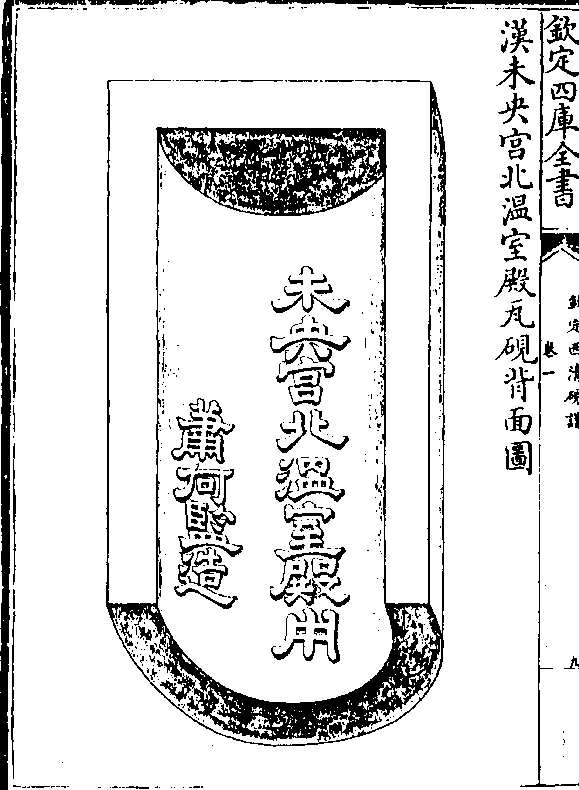 欽定四庫全書
欽定西清硯譜
卷一
九
漢未央宮北温室殿瓦硯背面圖
未央宮北温室殿用
蕭何監造